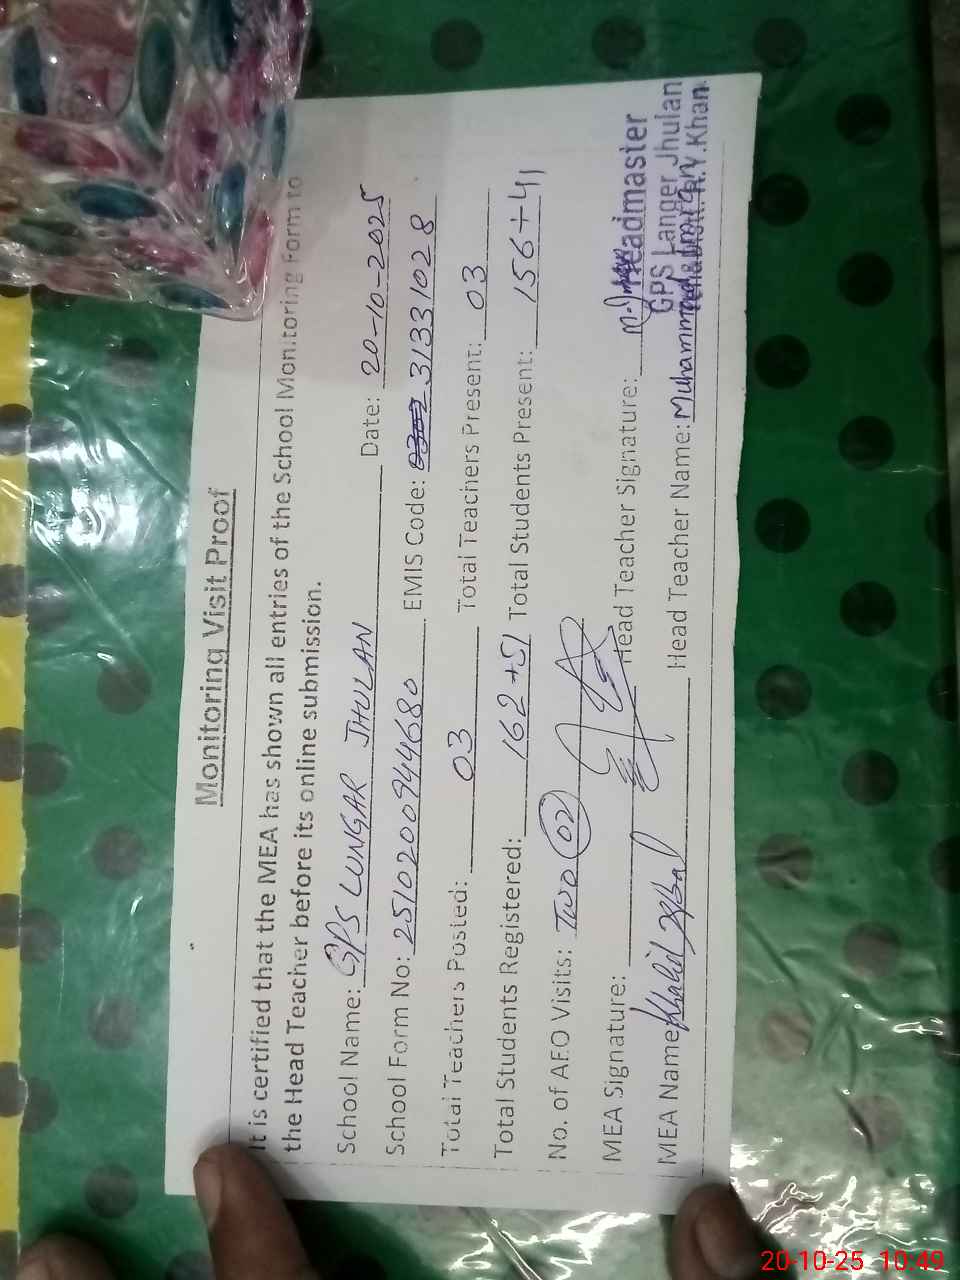 Monitoring Visit Proof
It is certified that the MEA has shown all entries of the School Monitoring Form to
the Head Teacher before its online submission.
School Name: GPS LUNGAR JHULAN Date: 20-10-2025
School Form No: 2510200944680 EMIS Code: 31331028
Total Teachers Posted: 03 Total Teachers Present: 03
Total Students Registered: 162+51 Total Students Present: 156+41
No. of AEO Visits: Two 02
MEA Signature: Head Teacher Signature:
Headmaster
GPS Langer Jhulan
R.Y.Khan
MEA Name: Khalid Iqbal Head Teacher Name: Muhammad
20-10-25 10:49